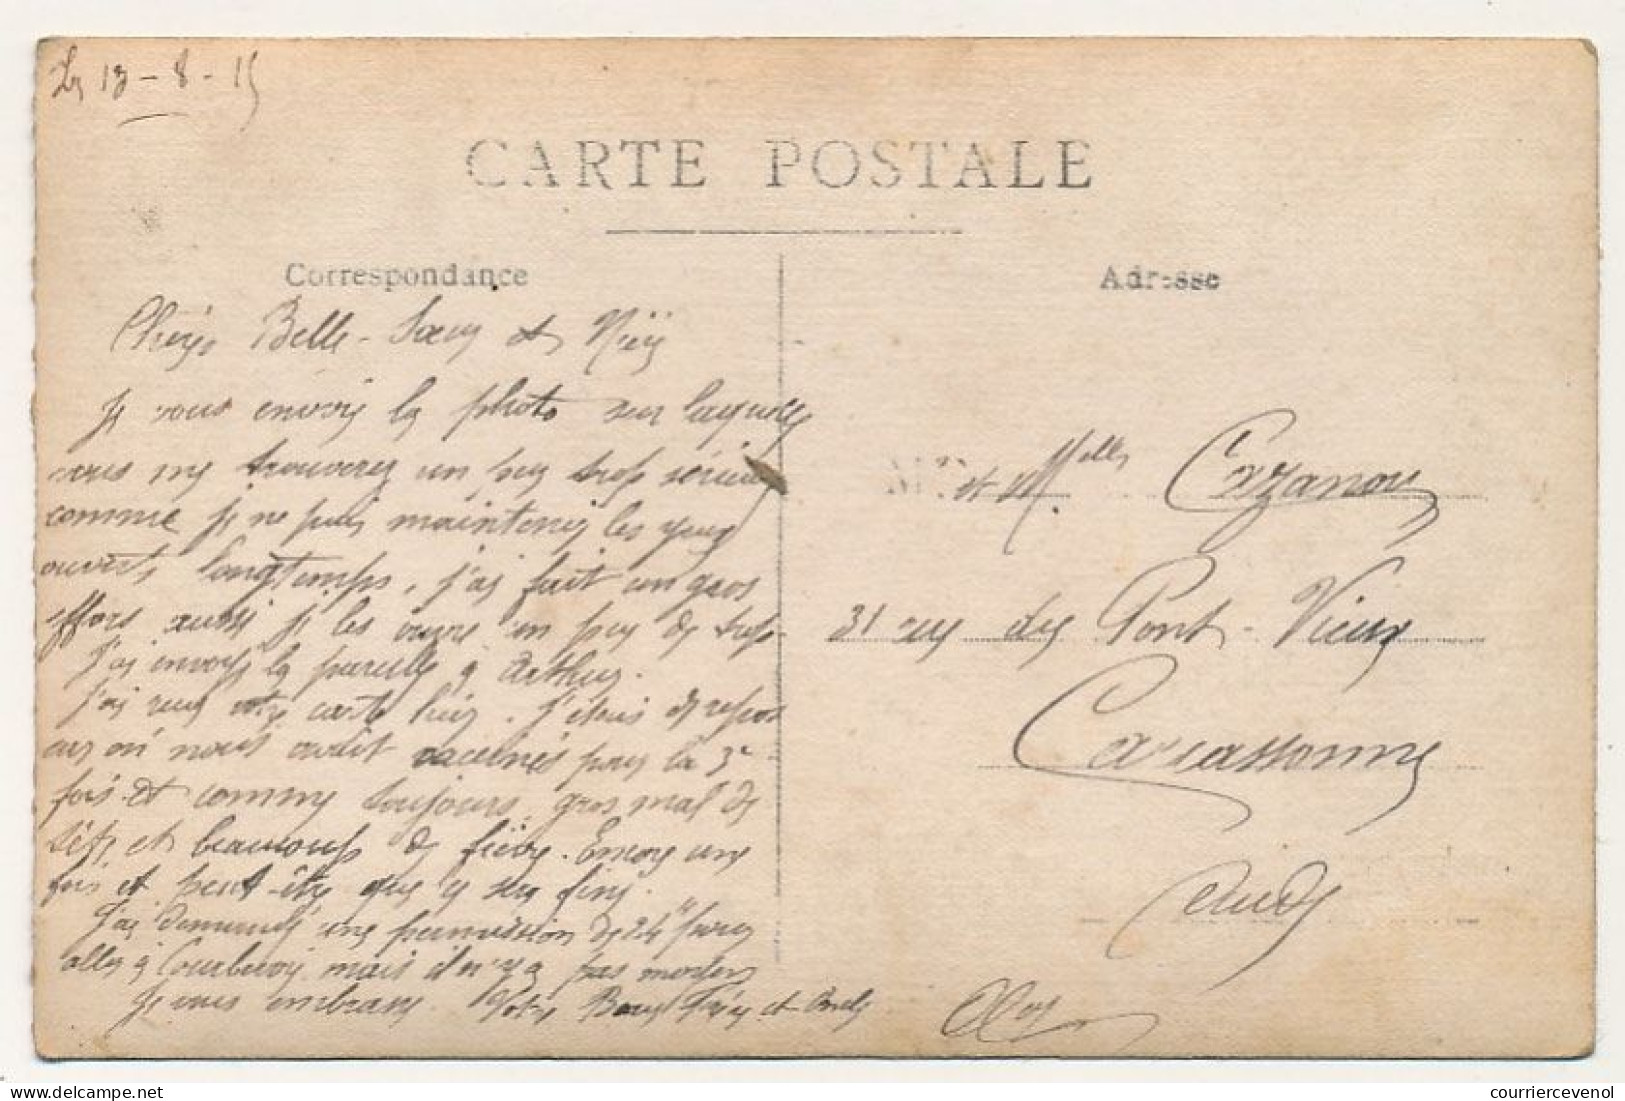 Le 13-8-15
CARTE POSTALE
Correspondance
Adresse
Chers Belle-Soeur et Nièce
Je vous envoie la photo sur laquelle
vous me trouverez un peu trop sérieux
comme je ne puis maintenir les yeux
ouverts longtemps, j'ai fait un gros
effort aussi je les ouvre un peu de trop.
J'ai envoyé la pareille à Arthur.
J'ai reçu votre carte hier. J'étais de repos
car on nous avait vaccinés pour la 3e
fois et comme toujours, gros mal de
tête et beaucoup de fièvre. Encore une
fois et peut-être que ce sera fini.
J'ai demandé une permission de 24h pour
aller à Courbevoie mais il n'y a pas moyen
Je vous embrasse. Votre Beau Frère et Oncle
et Melle Cazanou
31 rue du Pont-Vieux
Carcassonne
Aude
courriercevenol